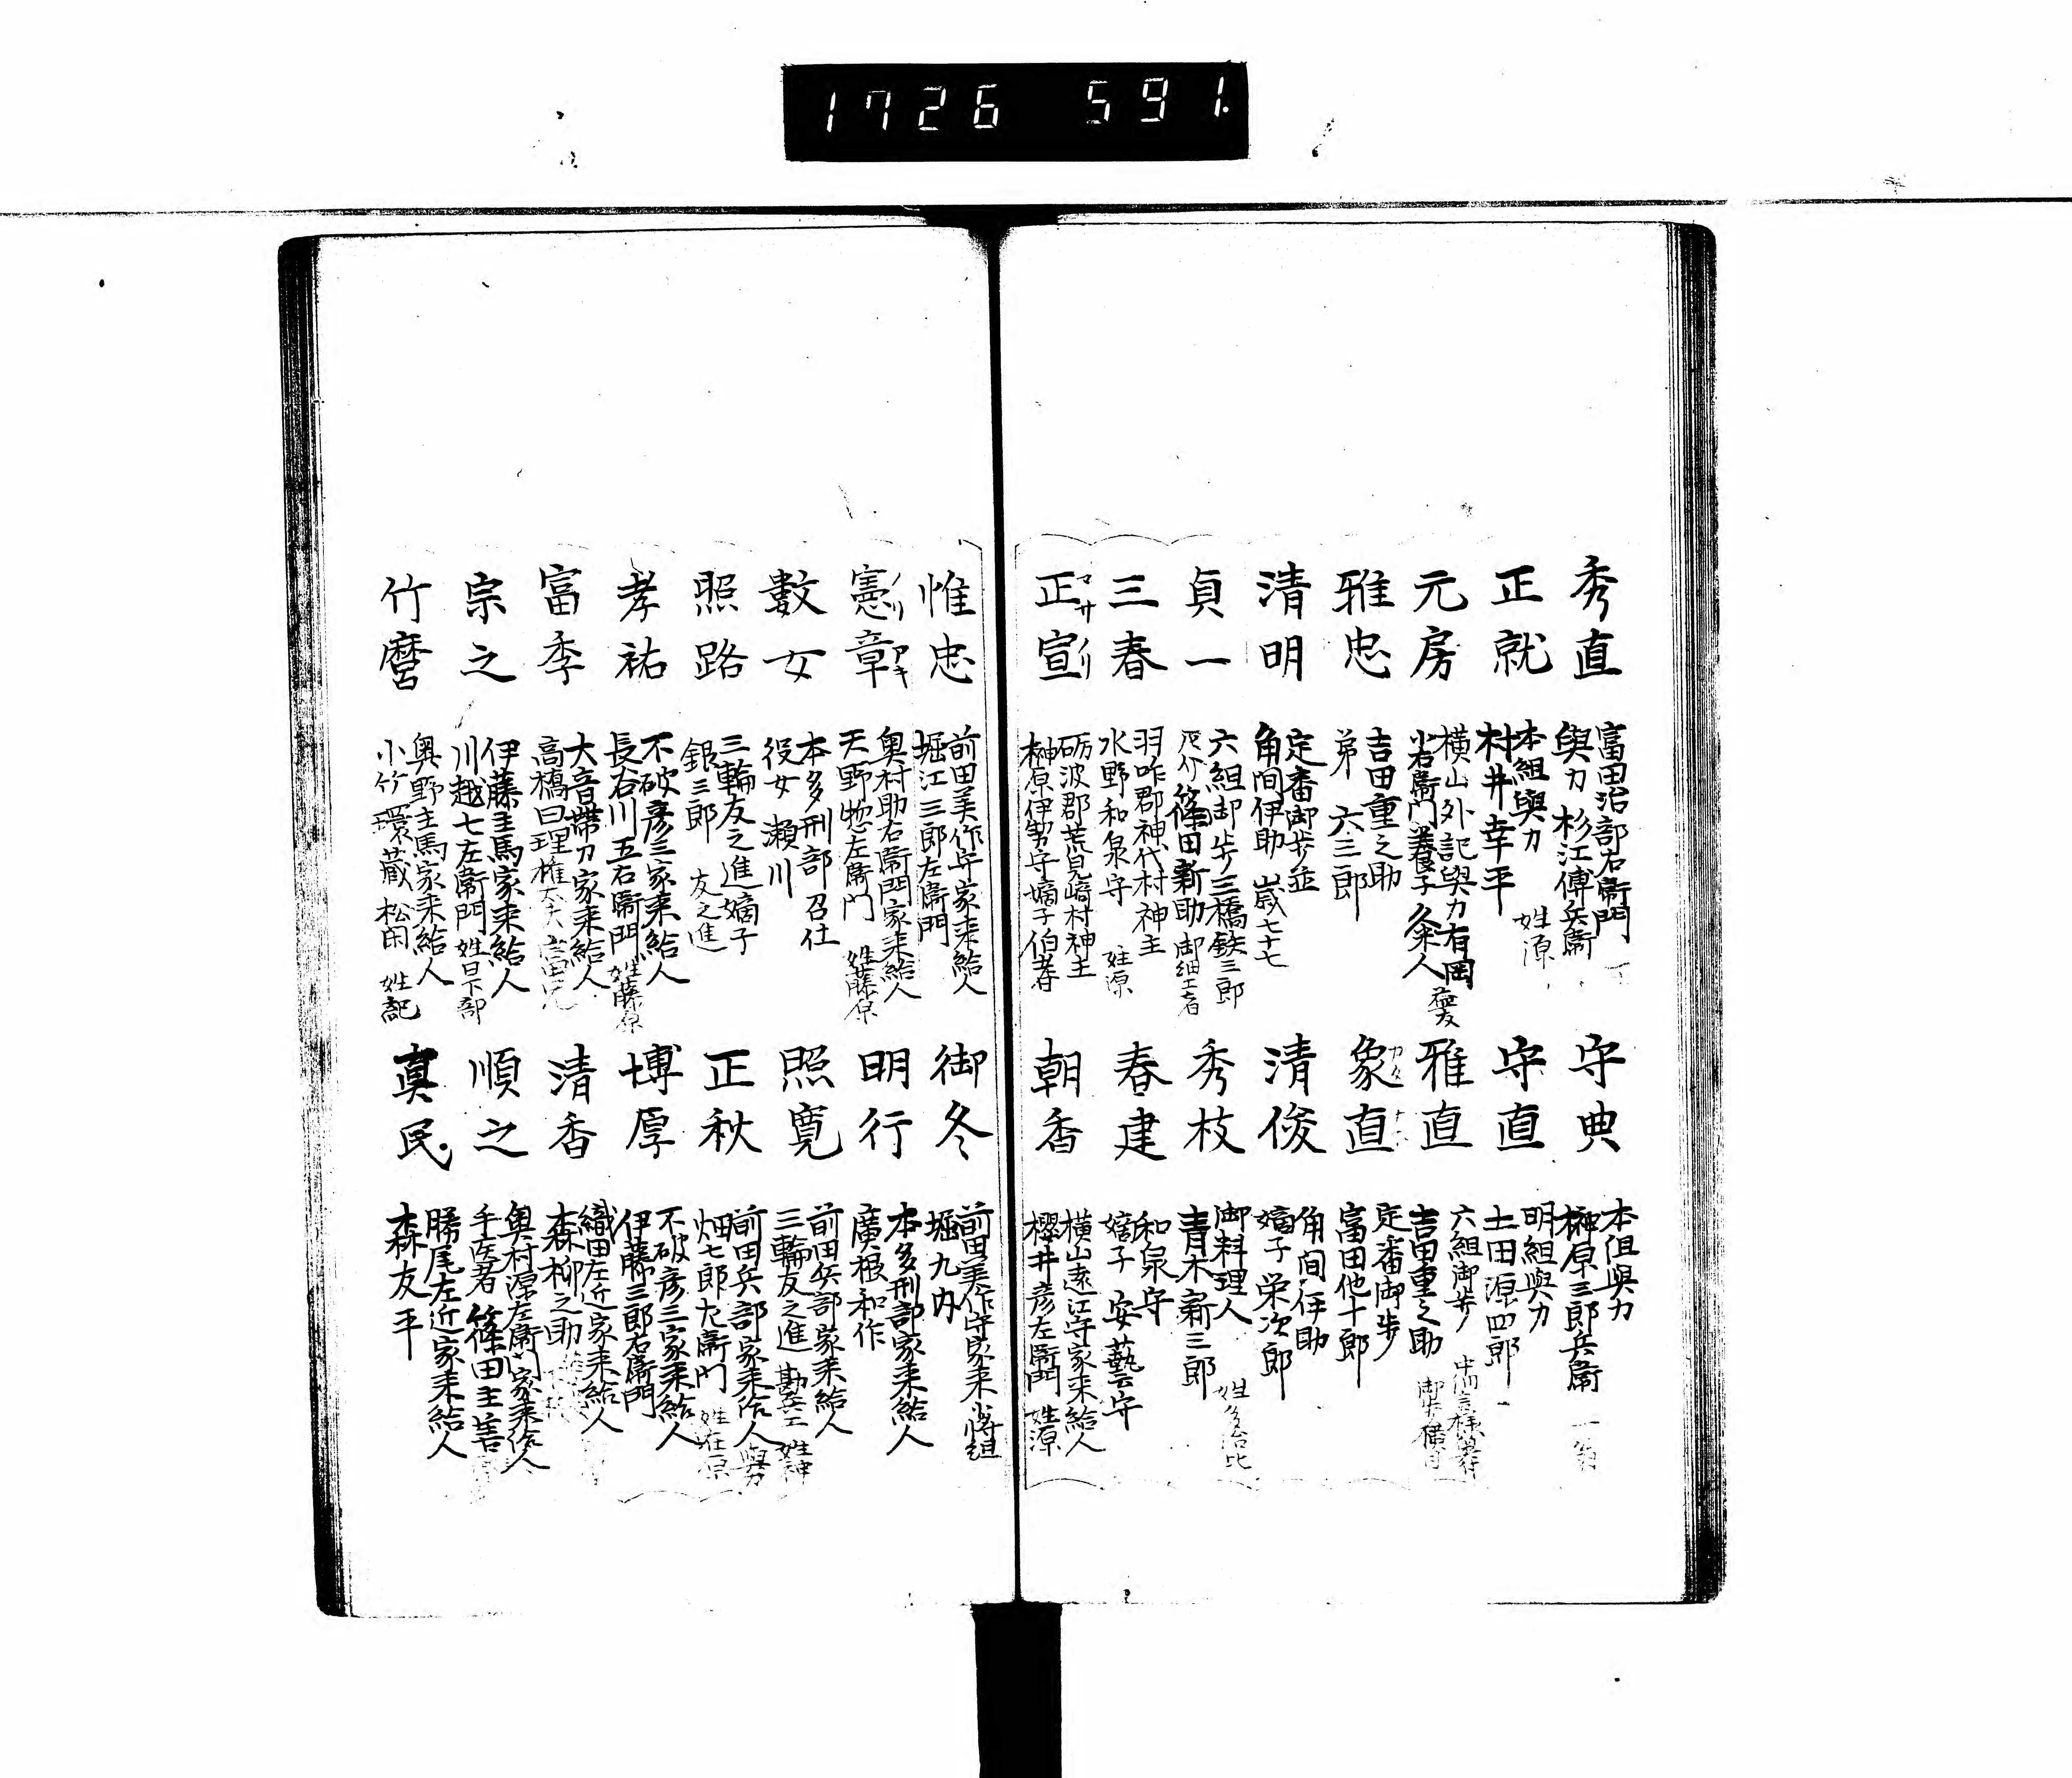 1726 591.
秀直
富田治部右衛門
與力 杉江傳兵衛
正就
本組與力
村井幸平 姓源
元房
横山外記與力有岡
小右衛門養子 粂人
雅忠
吉田重之助
弟 六三郎
清明
定番御歩並
角間伊助 歳七十七
貞一
六組御歩三橋鉄三郎
篠田新助 御細工者
三春
羽咋郡神代村神主
水野和泉守 姓源
正宣
マサ ノリ
砺波郡荒見崎村神主
榊原伊勢守嫡子伯耆
守典
本組與力
榊原三郎兵衛
守直
明組與力
土田源四郎
雅直
六組御歩
吉田重之助
象直
定番御歩
富田他十郎
清俊
角間伊助
嫡子 栄次郎
秀枝
御料理人
青木新三郎 姓多治比
春建
和泉守
嫡子 安藝守
朝香
横山遠江守家来給人
櫻井彦左衛門 姓源
惟忠
前田美作守家来給人
堀江三郎左衛門
憲章
ノリ アキ
奥村助右衛門家来給人
天野惣左衛門 姓藤原
數女
本多刑部召仕
役女 瀬川
照路
三輪友之進嫡子
銀三郎 友之進
孝祐
不破彦三家来給人
長谷川五右衛門 姓藤原
富季
大音帯刀家来給人
高橋曰理
宗之
伊藤主馬家来給人
川越七左衛門 姓日下部
竹麿
奥野主馬家来給人
小竹環蔵 松閑 姓紀
御冬
前田美作守家来小将組
堀九内
明行
本多刑部家来給人
廣根和作
照寛
前田兵部家来給人
三輪友之進
正秋
前田兵部家来給人與力
畑七郎左衛門 姓在原
博厚
不破彦三家来給人
伊藤三郎右衛門
清香
織田左近家来給人
森柳之助
順之
奥村源左衛門家来給人
手医者 篠田主善
真民
勝尾左近家来給人
森友平